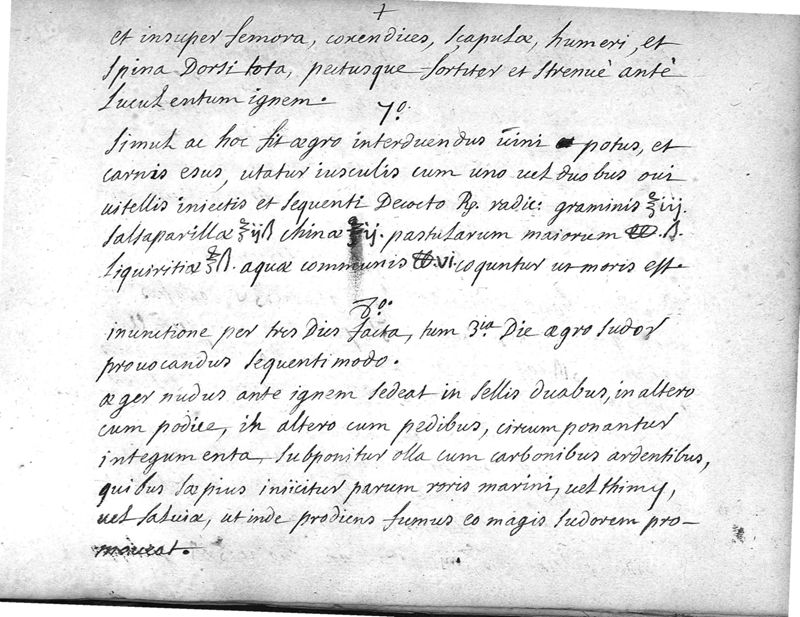 7
et insuper femora, coxendices, scapulæ, humeri, et
spina Dorsi tota, pectusque fortiter et strenuè antè
Luculentum ignem.
7º.
simul ac hoc fit ægro interduendus vini potus, et
carnis esus, utatur iusculis cum uno vel duobus ovi
vitellis iniectis et sequenti Decocto ℞. radic: graminis ℥iij.
salsaparillæ ℥ijß chinæ ℥ij. pastularum maiorum ℔.ß.
Liquiritiæ ℥ß. aquæ communis ℔.vi. coquntur ut moris est.
8º.
inunctione per tres Dies facta, tum 3ia. Die ægro sudor
provocandus sequenti modo.
æger nudus ante ignem sedeat in sellis duabus, in altero
cum podice, in altero cum pedibus, circumponantur
integumenta, subponitur olla cum carbonibus ardentibus,
quibus sæpius iniicitur parum roris marini, vel thimy,
vel salviæ, ut inde prodiens fumus eo magis sudorem pro-
moveat.